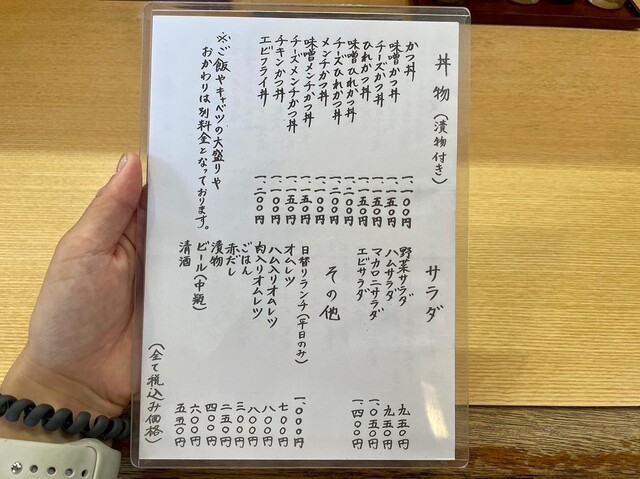 丼物(漬物付き)
かつ丼 一、一〇〇円
味噌かつ丼 一、一五〇円
チーズかつ丼 一、一五〇円
ひれかつ丼 一、一五〇円
味噌ひれかつ丼 一、二〇〇円
チーズひれかつ丼 一、二〇〇円
メンチかつ丼 一、一〇〇円
味噌メンチかつ丼 一、一五〇円
チーズメンチかつ丼 一、一五〇円
チキンかつ丼 一、一〇〇円
エビフライ丼 一、二〇〇円
※ご飯やキャベツの大盛りや
おかわりは別料金となっております。
サラダ
野菜サラダ 九五〇円
ハムサラダ 九五〇円
マカロニサラダ 一、〇五〇円
エビサラダ 一、四〇〇円
その他
日替りランチ(平日のみ) 一、〇〇〇円
オムレツ 七〇〇円
ハム入りオムレツ 八〇〇円
肉入りオムレツ 八〇〇円
ごはん 三〇〇円
赤だし 二五〇円
漬物 四〇〇円
ビール(中瓶) 六〇〇円
清酒 五五〇円
(全て税込み価格)